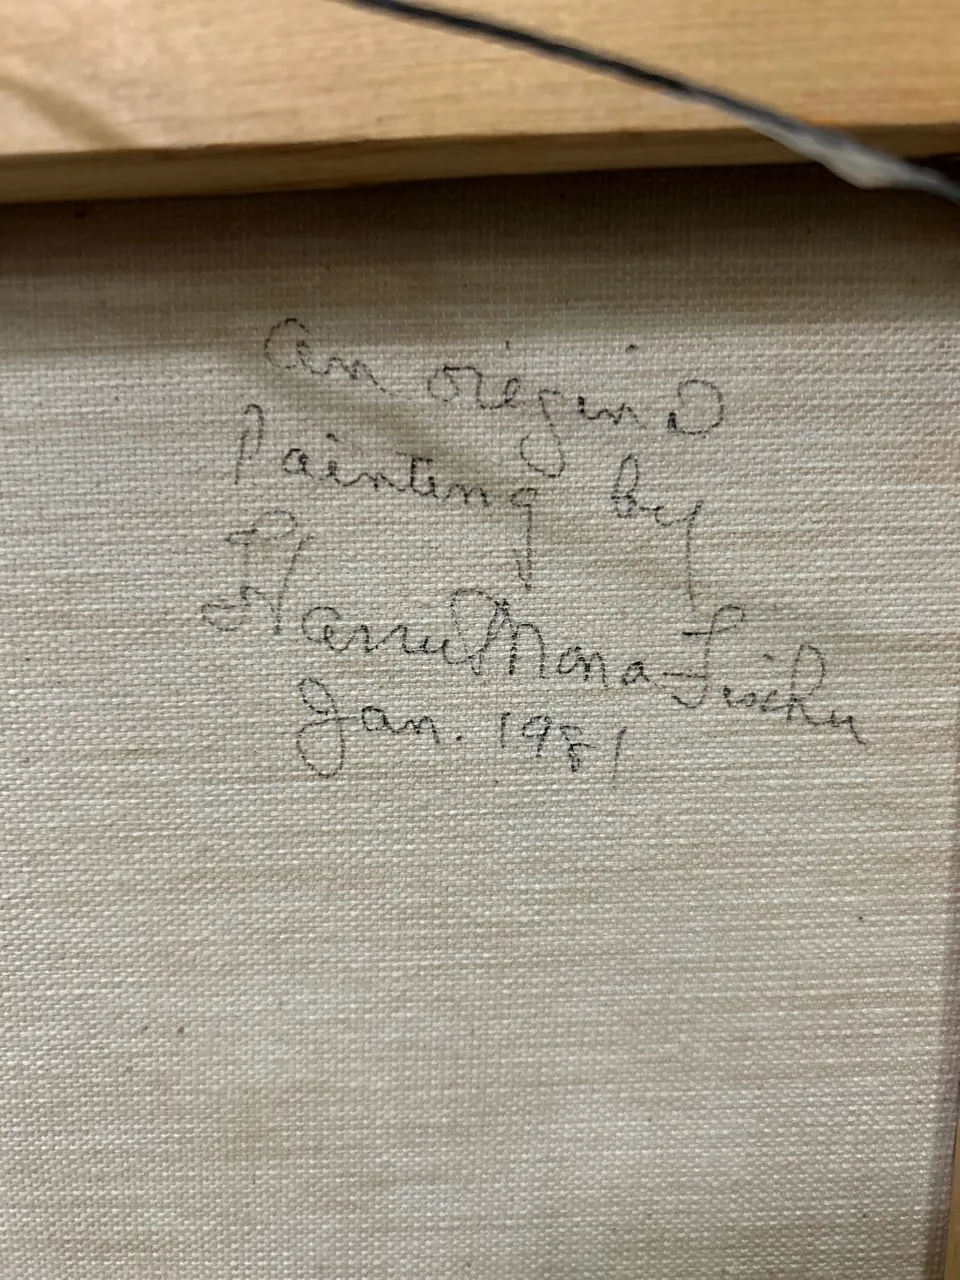 An original
Painting by
Mona Fischer
Jan. 1981